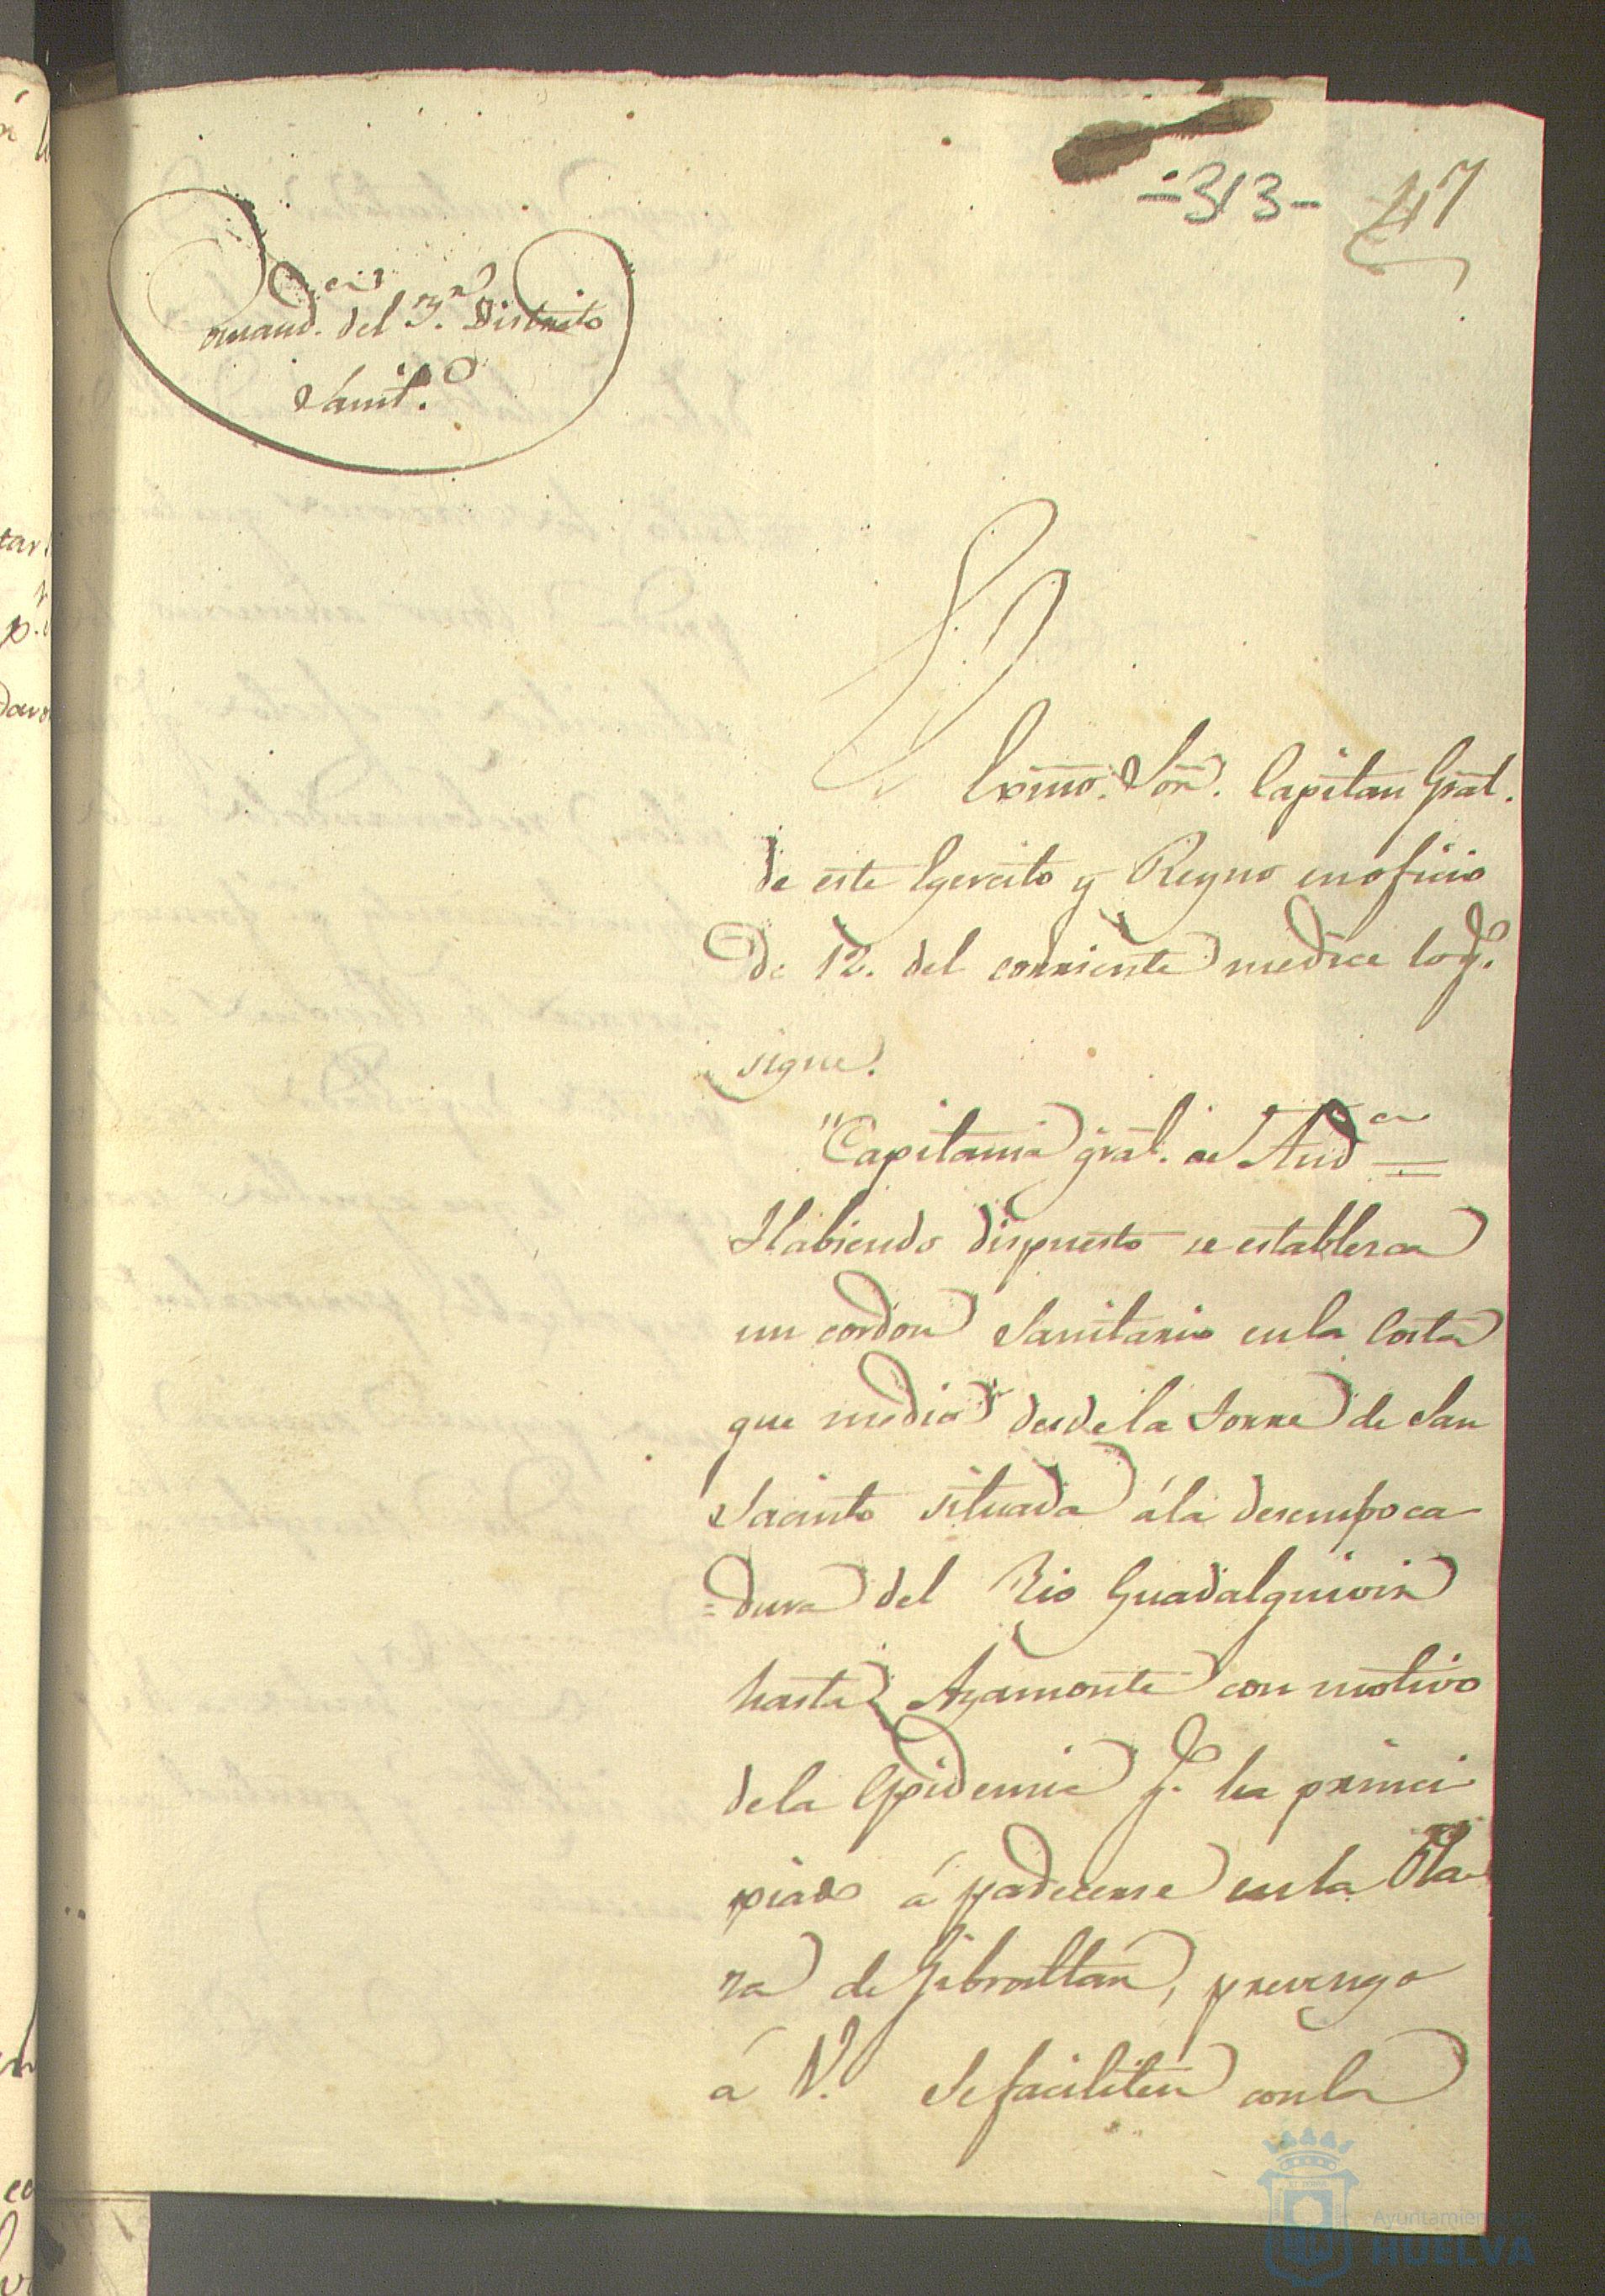 -313- 47
Comand.cia del 3.er Distrito
Sanit.o
El Exmo. Sor. Capitan Gral.
de este Egercito y Reyno en oficio
de 12. del corriente me dice lo q.e
sigue.
"Capitania gral. de And.cia =
Habiendo dispuesto se establezca
un cordon Sanitario en la Costa
que media desde la Torre de San
Jacinto situada á la desempoca
=dura del Rio Guadalquivir
hasta Ayamonte con motivo
de la Epidemia q.e ha princi
piado á padecerse en la Pla
za de Gibraltar, prevengo
á V. se faciliten con la
Ayuntamiento de
HUELVA